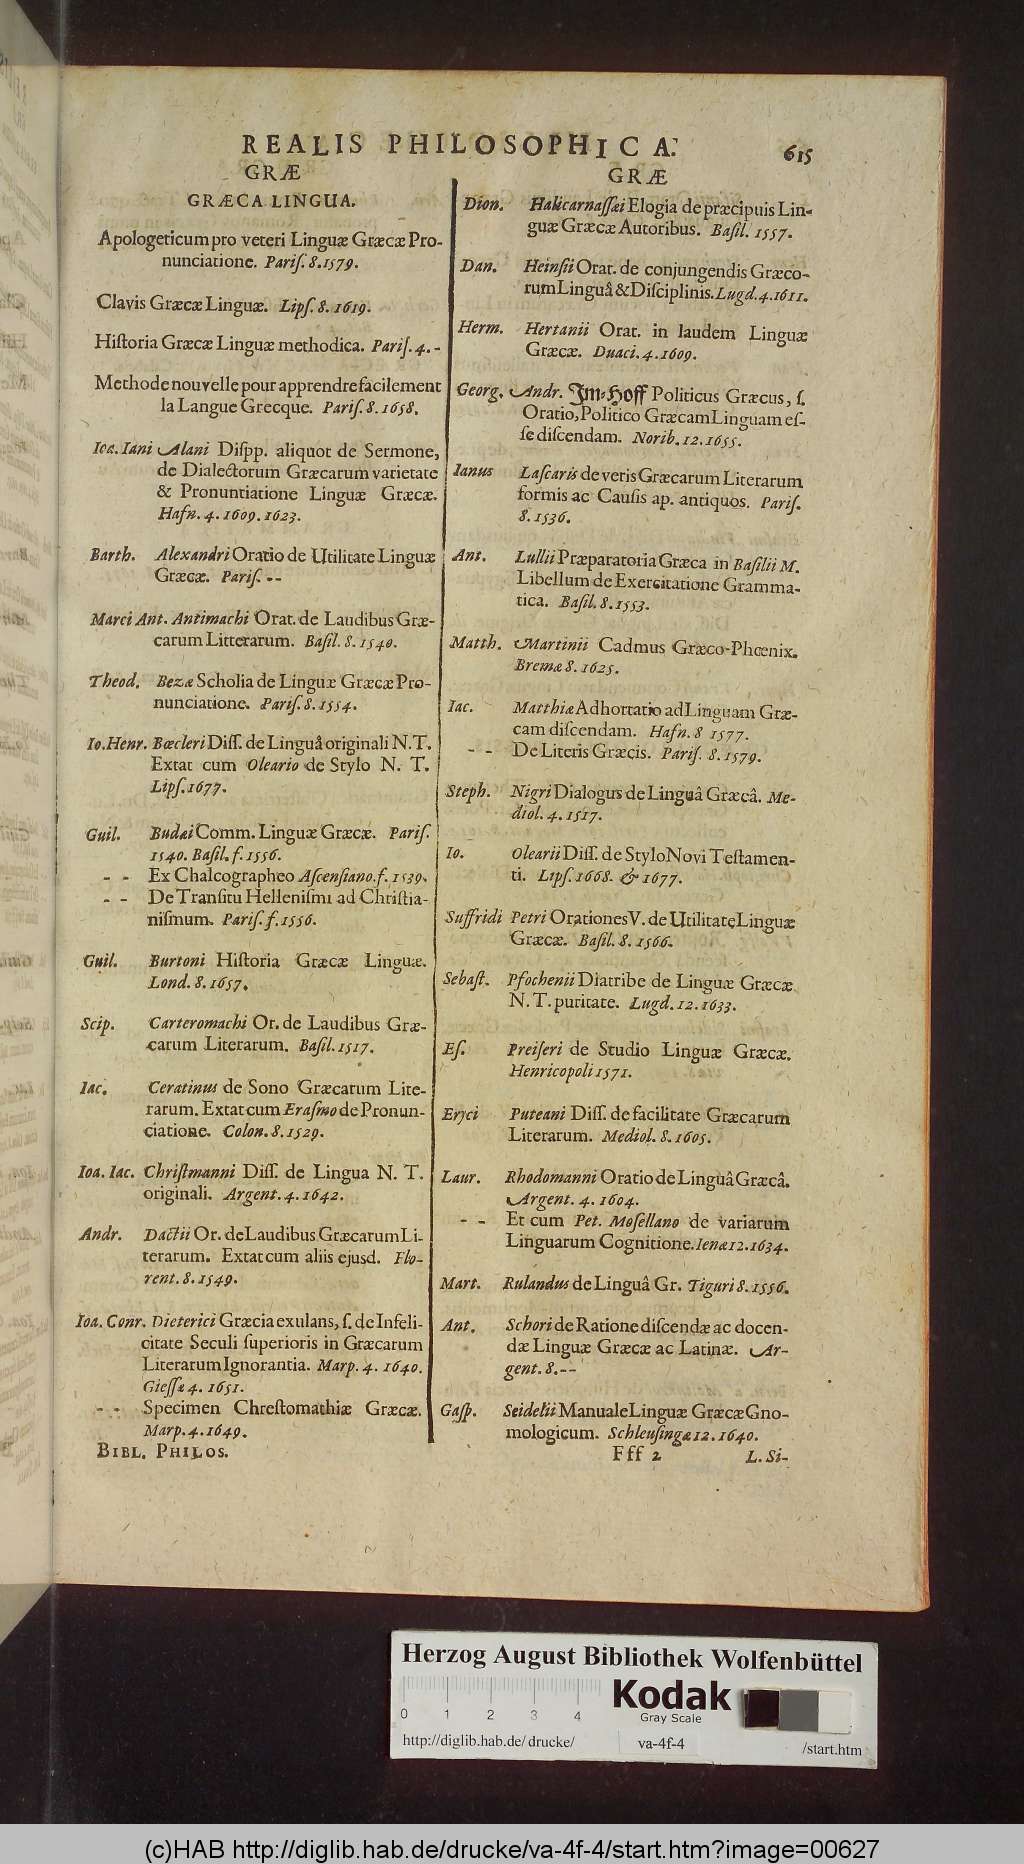 REALIS PHILOSOPHICA. 615
GRÆ
GRÆCA LINGUA.
Apologeticum pro veteri Linguæ Græcæ Pro-
nunciatione. Pariſ. 8. 1579.
Clavis Græcæ Linguæ. Lipſ. 8. 1619.
Hiſtoria Græcæ Linguæ methodica. Pariſ. 4. -
Methode nouvelle pour apprendre facilement
la Langue Grecque. Pariſ. 8. 1658.
Ioa. Iani Alani Diſpp. aliquot de Sermone,
de Dialectorum Græcarum varietate
& Pronuntiatione Linguæ Græcæ.
Hafn. 4. 1609. 1623.
Barth. Alexandri Oratio de Utilitate Linguæ
Græcæ. Pariſ. - -
Marci Ant. Antimachi Orat. de Laudibus Græ-
carum Litterarum. Baſil. 8. 1540.
Theod. Bezæ Scholia de Linguæ Græcæ Pro-
nunciatione. Pariſ. 8. 1554.
Io. Henr. Bœcleri Diſſ. de Linguâ originali N. T.
Extat cum Oleario de Stylo N. T.
Lipſ. 1677.
Guil. Budæi Comm. Linguæ Græcæ. Pariſ.
1540. Baſil. f. 1556.
- - Ex Chalcographeo Aſcenſiano. f. 1539.
- - De Tranſitu Helleniſmi ad Chriſtia-
niſmum. Pariſ. f. 1556.
Guil. Burtoni Hiſtoria Græcæ Linguæ.
Lond. 8. 1657.
Scip. Carteromachi Or. de Laudibus Græ-
carum Literarum. Baſil. 1517.
Iac. Ceratinus de Sono Græcarum Lite-
rarum. Extat cum Eraſmo de Pronun-
ciatione. Colon. 8. 1529.
Ioa. Iac. Chriſtmanni Diſſ. de Lingua N. T.
originali. Argent. 4. 1642.
Andr. Dactii Or. de Laudibus Græcarum Li-
terarum. Extat cum aliis ejusd. Flo-
rent. 8. 1549.
Ioa. Conr. Dieterici Græcia exulans, ſ. de Infeli-
citate Seculi ſuperioris in Græcarum
Literarum Ignorantia. Marp. 4. 1640.
Gieſſæ 4. 1651.
- - Specimen Chreſtomathiæ Græcæ.
Marp. 4. 1649.
BIBL. PHILOS.
GRÆ
Dion. Halicarnaſſæi Elogia de præcipuis Lin-
guæ Græcæ Autoribus. Baſil. 1557.
Dan. Heinſii Orat. de conjungendis Græco-
rum Linguâ & Diſciplinis. Lugd. 4. 1611.
Herm. Hertanii Orat. in laudem Linguæ
Græcæ. Duaci. 4. 1609.
Georg. Andr. Im-Hoff Politicus Græcus, ſ.
Oratio, Politico Græcam Linguam eſ-
ſe diſcendam. Norib. 12. 1655.
Ianus Laſcaris de veris Græcarum Literarum
formis ac Cauſis ap. antiquos. Pariſ.
8. 1536.
Ant. Lullii Præparatoria Græca in Baſilii M.
Libellum de Exercitatione Gramma-
tica. Baſil. 8. 1553.
Matth. Martinii Cadmus Græco-Phœnix.
Bremæ 8. 1625.
Iac. Matthiæ Adhortatio ad Linguam Græ-
cam diſcendam. Hafn. 8 1577.
- - De Literis Græcis. Pariſ. 8. 1579.
Steph. Nigri Dialogus de Linguâ Græcâ. Me-
diol. 4. 1517.
Io. Olearii Diſſ. de Stylo Novi Teſtamen-
ti. Lipſ. 1668. & 1677.
Suffridi Petri Orationes V. de Utilitate Linguæ
Græcæ. Baſil. 8. 1566.
Sebaſt. Pfochenii Diatribe de Linguæ Græcæ
N. T. puritate. Lugd. 12. 1633.
Eſ. Preiſeri de Studio Linguæ Græcæ.
Henricopoli 1571.
Eryci Puteani Diſſ. de facilitate Græcarum
Literarum. Mediol. 8. 1605.
Laur. Rhodomanni Oratio de Linguâ Græcâ.
Argent. 4. 1604.
- - Et cum Pet. Moſellano de variarum
Linguarum Cognitione. Ienæ 12. 1634.
Mart. Rulandus de Linguâ Gr. Tiguri 8. 1556.
Ant. Schori de Ratione diſcendæ ac docen-
dæ Linguæ Græcæ ac Latinæ. Ar-
gent. 8. - -
Gaſp. Seidelii Manuale Linguæ Græcæ Gno-
mologicum. Schleuſingæ 12. 1640.
Fff 2 L. Si-
Herzog August Bibliothek Wolfenbüttel
0 1 2 3 4
Kodak
Gray Scale
http://diglib.hab.de/drucke/ va-4f-4 /start.htm
(c)HAB http://diglib.hab.de/drucke/va-4f-4/start.htm?image=00627